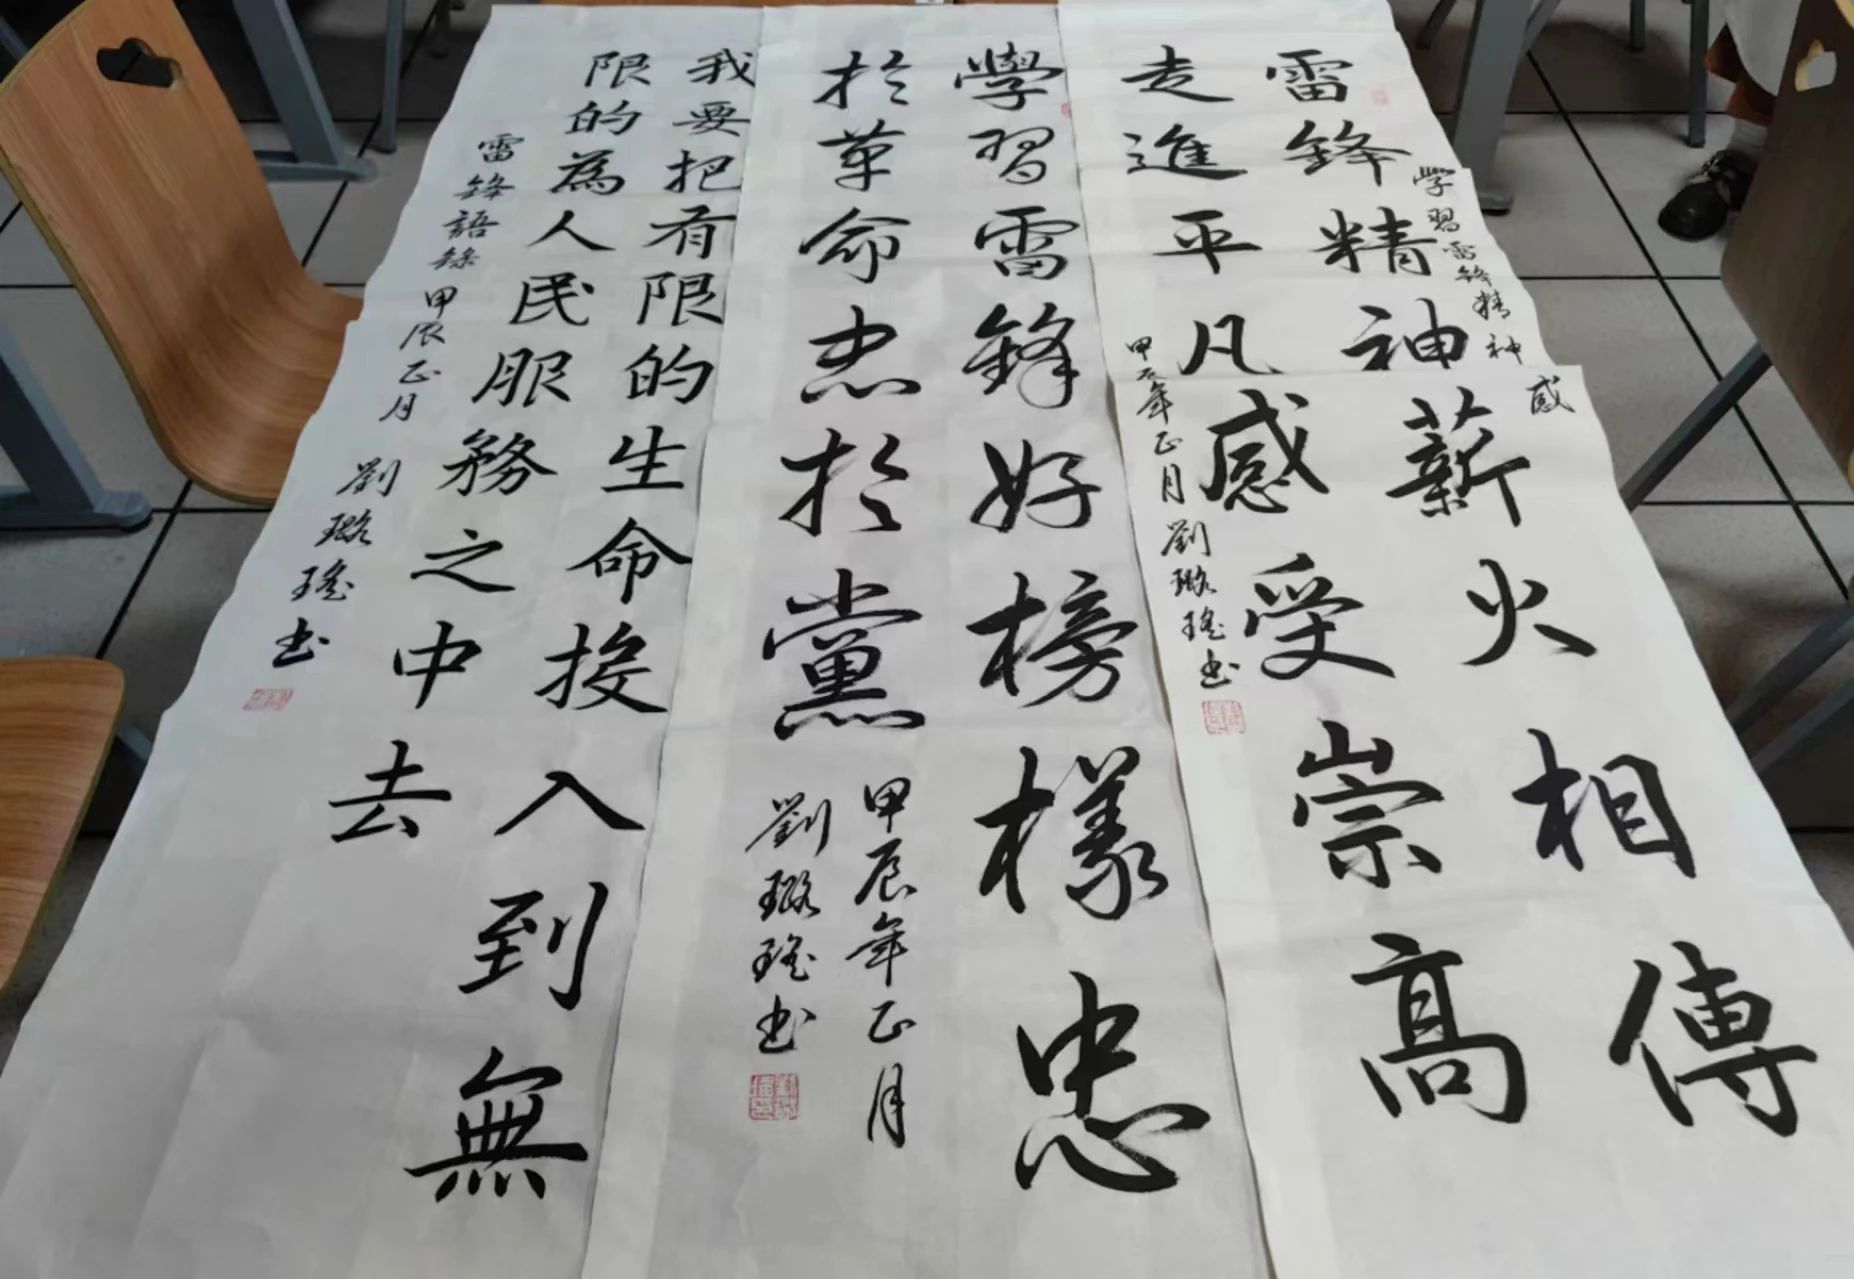 学習雷鋒精神感
雷鋒精神薪火相傳
走進平凡感受崇高
甲辰年正月劉璐瑤書
學習雷鋒好榜樣忠
於革命忠於黨
甲辰年正月
劉璐瑤書
我要把有限的生命投入到無
限的為人民服務之中去
雷鋒語錄甲辰正月劉璐瑤書